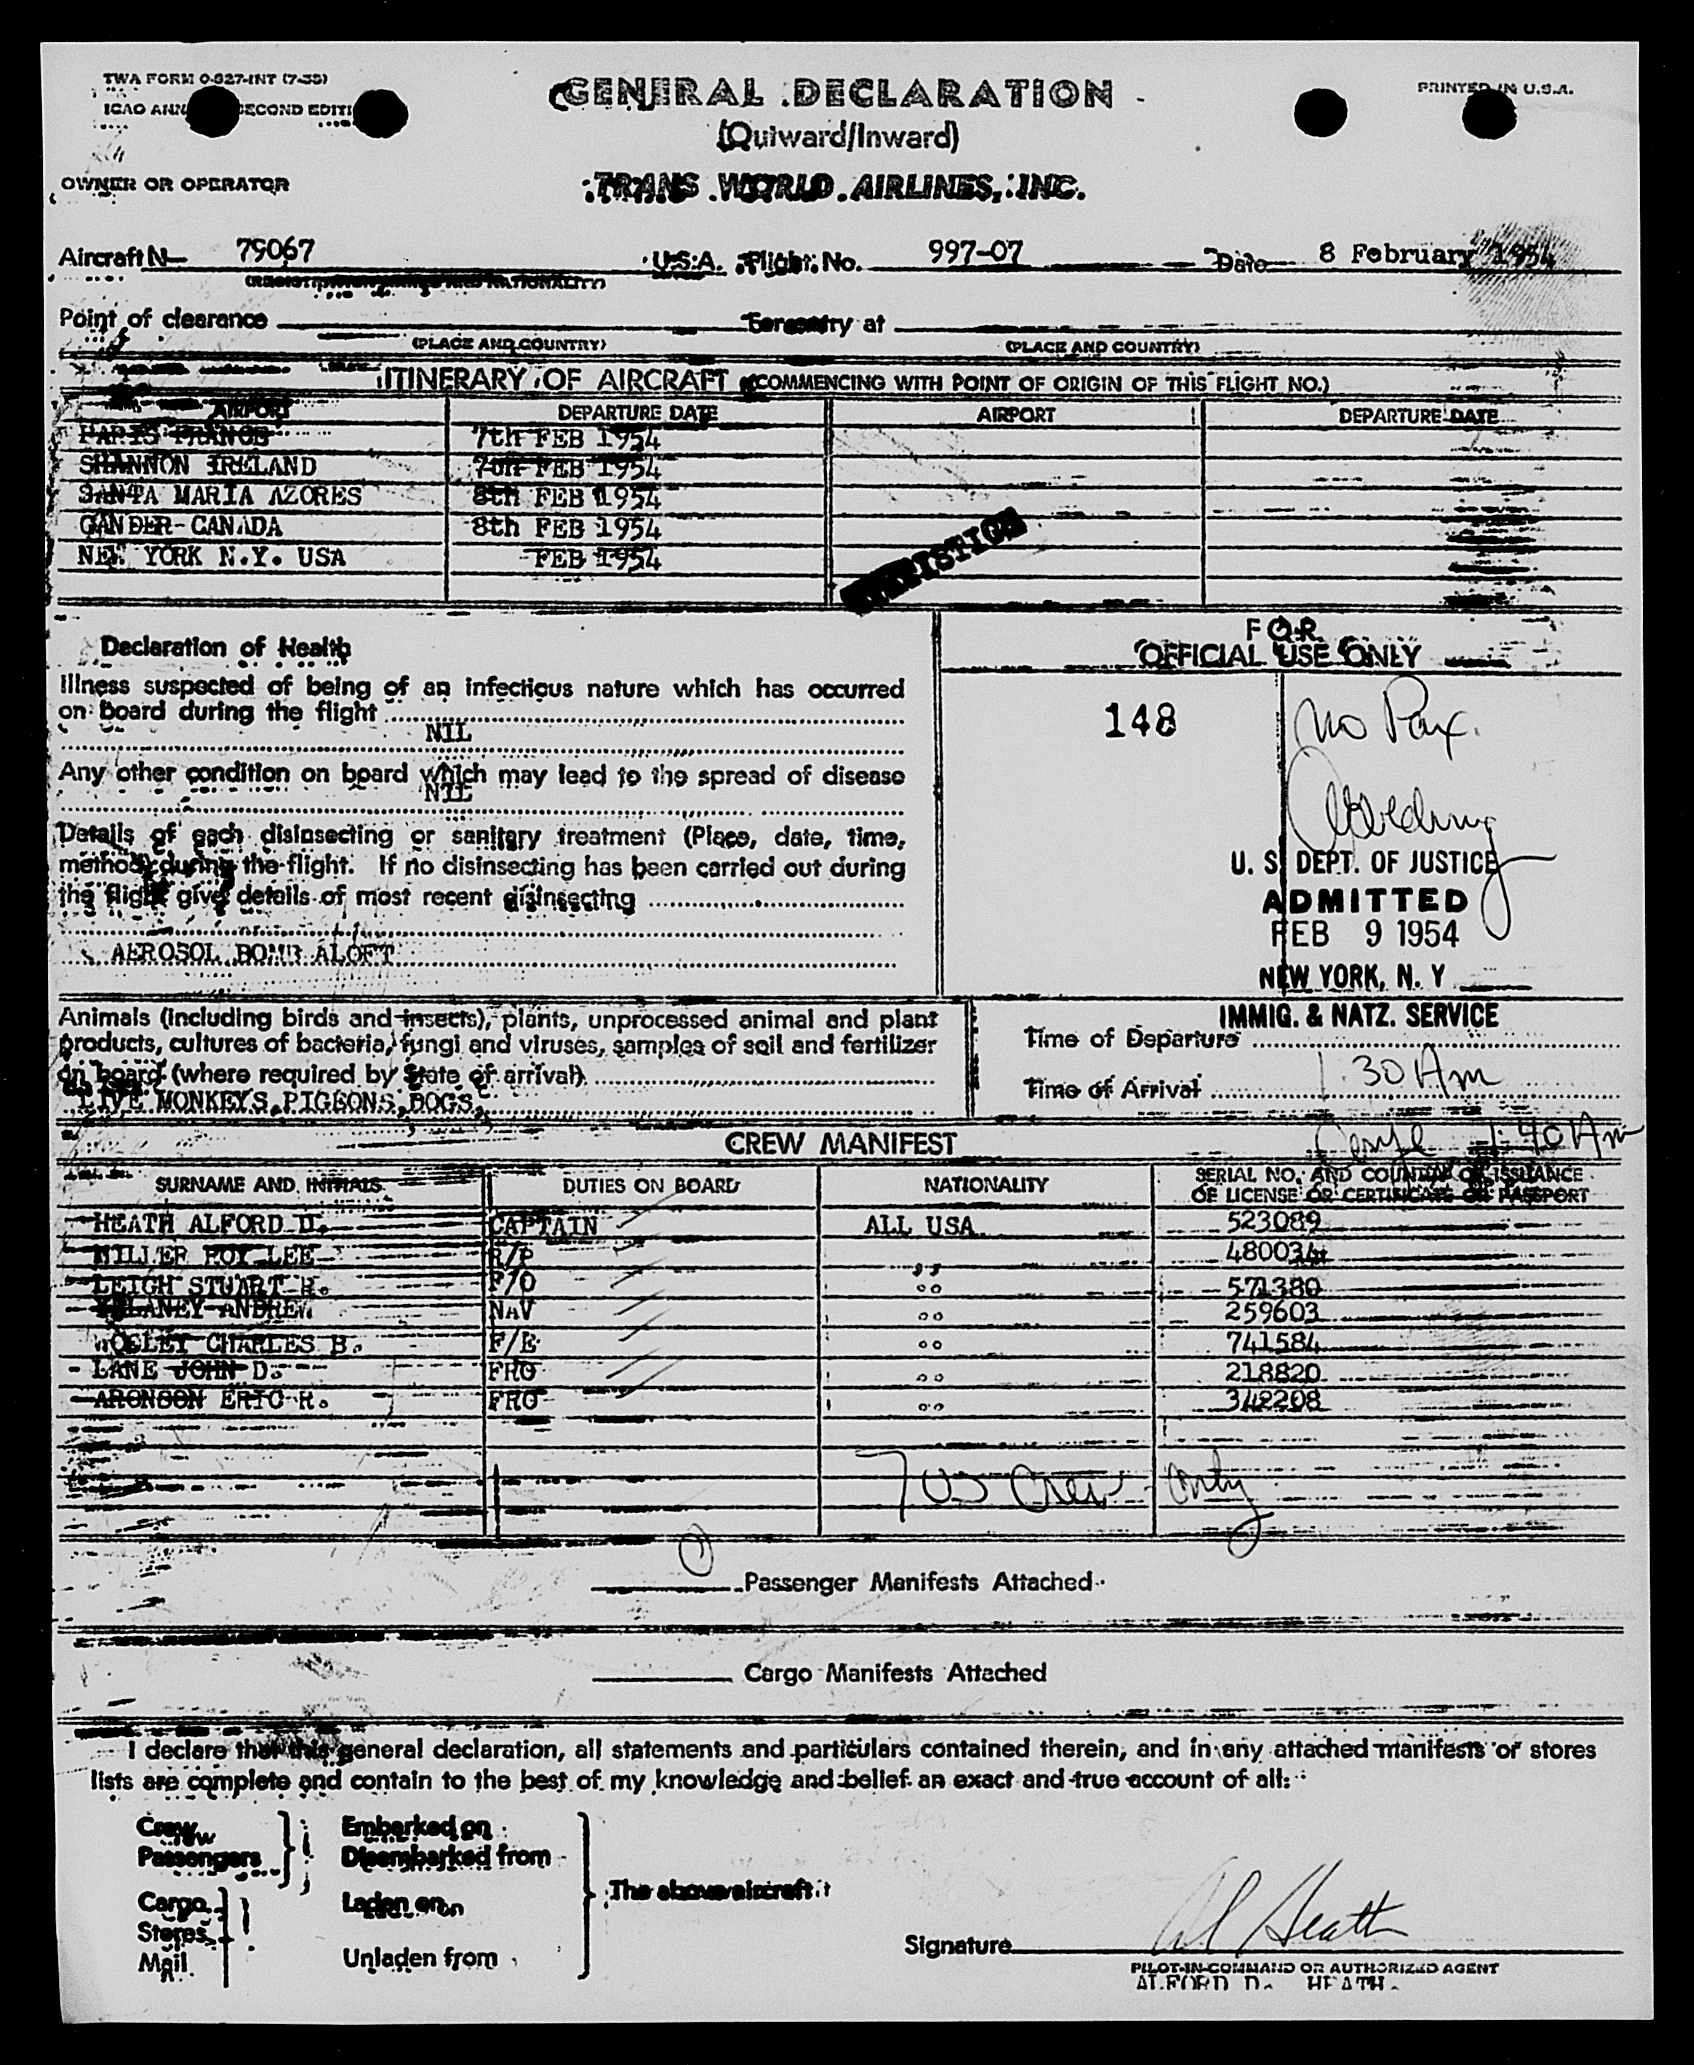 TWA FORM O-827-INT (7-53)
PRINTED IN U.S.A.
ICAO ANN SECOND EDITI
GENERAL DECLARATION
(Outward/Inward)
OWNER OR OPERATOR
TRANS WORLD AIRLINES, INC.
Aircraft N 79067 U.S.A. Flight No. 997-07 Date 8 February 1954
(REGISTRATION MARKS AND NATIONALITY)
Point of clearance For entry at
(PLACE AND COUNTRY) (PLACE AND COUNTRY)
ITINERARY OF AIRCRAFT (COMMENCING WITH POINT OF ORIGIN OF THIS FLIGHT NO.)
AIRPORT DEPARTURE DATE AIRPORT DEPARTURE DATE
PARIS FRANCE 7th FEB 1954
SHANNON IRELAND 7th FEB 1954
SANTA MARIA AZORES 8th FEB 1954
GANDER-CANADA 8th FEB 1954
NEW YORK N.Y. USA FEB 1954
Declaration of Health
Illness suspected of being of an infectious nature which has occurred
on board during the flight
NIL
Any other condition on board which may lead to the spread of disease
NIL
Details of each disinsecting or sanitary treatment (Place, date, time,
method) during the flight. If no disinsecting has been carried out during
the flight give details of most recent disinsecting
AEROSOL BOMB ALOFT
FOR
OFFICIAL USE ONLY
148
No Pax.
U. S. DEPT. OF JUSTICE
ADMITTED
FEB 9 1954
NEW YORK, N. Y
IMMIG. & NATZ. SERVICE
Animals (including birds and insects), plants, unprocessed animal and plant
products, cultures of bacteria, fungi and viruses, samples of soil and fertilizer
on board (where required by State of arrival)
LIVE MONKEYS,PIGEONS,DOGS,
Time of Departure
Time of Arrival 1:30 Am
1:40 Am
CREW MANIFEST
SURNAME AND INITIALS DUTIES ON BOARD NATIONALITY SERIAL NO. AND COUNTRY OF ISSUANCE
OF LICENSE OR CERTIFICATE OR PASSPORT
HEATH ALFORD D. CAPTAIN ALL USA 523089
MILLER ROY LEE R/P ,, 480034
LEIGH STUART R. F/O " 571380
ANDREW NAV " 259603
CHARLES B. F/E " 741584
LANE JOHN D. FRO " 218820
ARONSON ERIC R. FRO " 342208
7 US Crew only
0 Passenger Manifests Attached
Cargo Manifests Attached
I declare that this general declaration, all statements and particulars contained therein, and in any attached manifests or stores
lists are complete and contain to the best of my knowledge and belief an exact and true account of all:
Crew
Passengers
Embarked on
Disembarked from
Cargo
Stores
Mail
Laden on
Unladen from
The above aircraft
Signature Al Heath
PILOT-IN-COMMAND OR AUTHORIZED AGENT
ALFORD D. HEATH.